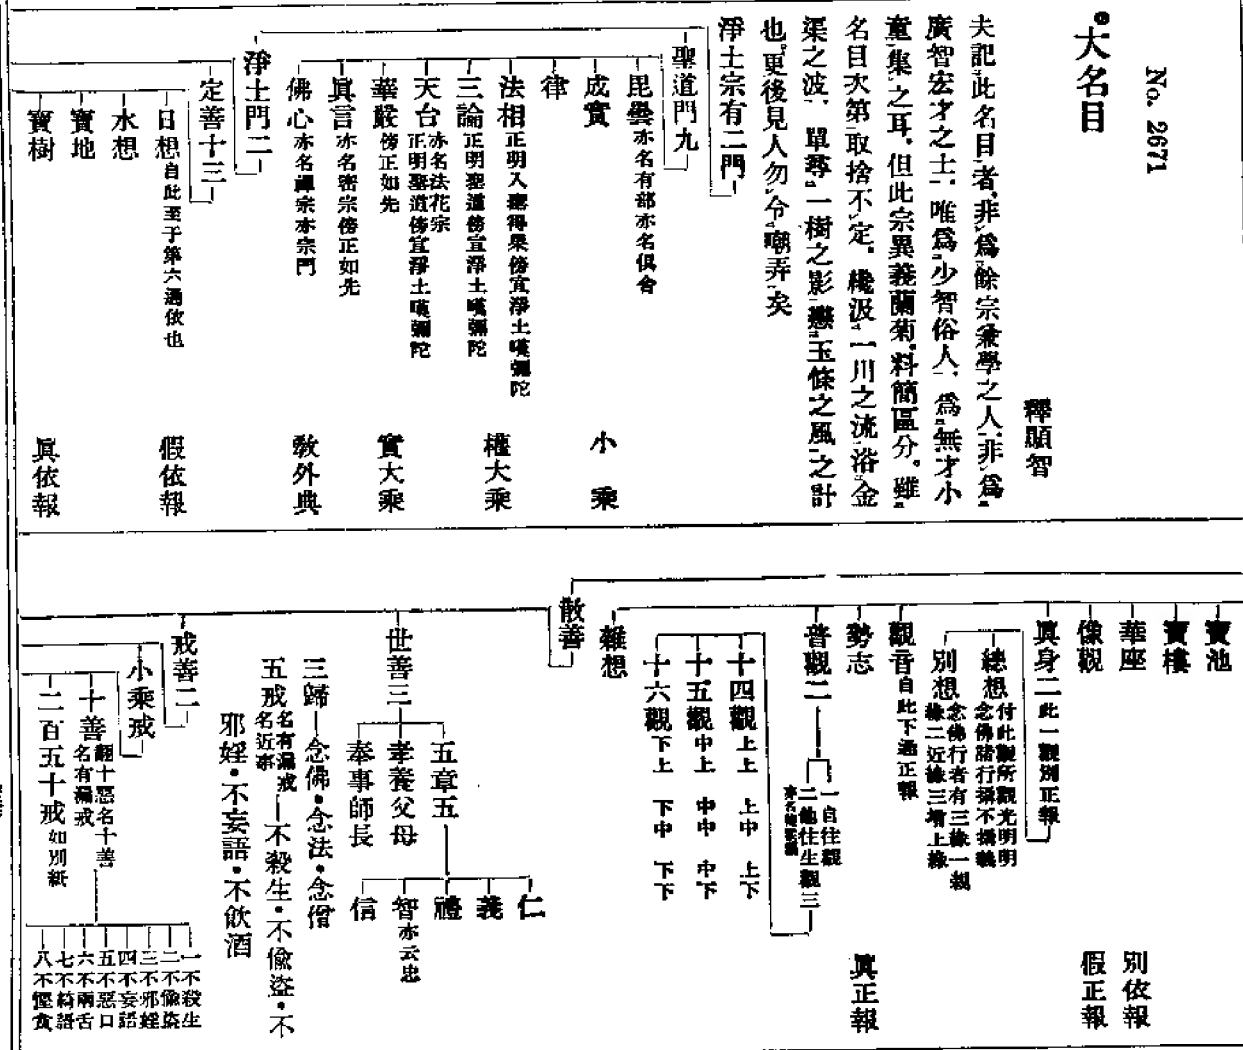 No. 2671
大名目
釋顯智
夫記此名目者、非爲餘宗兼學之人、非爲
廣智宏才之士、唯爲少智俗人、爲無才小
童集之耳、但此宗異義蘭菊、料簡區分。雖
名目次第取捨不定、纔汲一川之流浴金
渠之波、單尋一樹之影戀玉條之風之計
也、更後見人勿令嘲弄矣
淨土宗有二門
聖道門九
毘曇亦名有部亦名倶舍
成實
小乘
律
法相正明入聖得果傍宣淨土嘆彌陀
權大乘
三論正明聖道傍宣淨土嘆彌陀
天台亦名法花宗
正明聖道傍宣淨土嘆彌陀
實大乘
華嚴傍正如先
眞言亦名密宗傍正如先
佛心亦名禪宗亦宗門
教外典
淨土門二
定善十三
日想自此至于第六通依也
假依報
水想
寶地
寶樹
眞依報
寶池
寶樓
華座
別依報
像觀
假正報
眞身二此一觀別正報
總想付此觀所觀光明明
念佛諸行攝不攝義
別想念佛行者有三緣一親
緣二近緣三增上緣
觀音自此下通正報
勢志
眞正報
普觀二
一自往觀
二他往生觀三
十四觀 上上 上中 上下
十五觀 中上 中中 中下
十六觀 下上 下中 下下
雜想
散善
世善三
五章五
仁
義
禮
智亦云忠
信
孝養父母
奉事師長
三歸 念佛・念法・念僧
五戒名有漏戒
名近事
不殺生・不偸盜・不
邪婬・不妄語・不飲酒
戒善二
小乘戒
十善翻十惡名十善
名有漏戒
一不殺生
二不偸盜
三不邪婬
四不妄語
五不惡口
六不兩舌
七不綺語
八不慳貪
二百五十戒如別紙